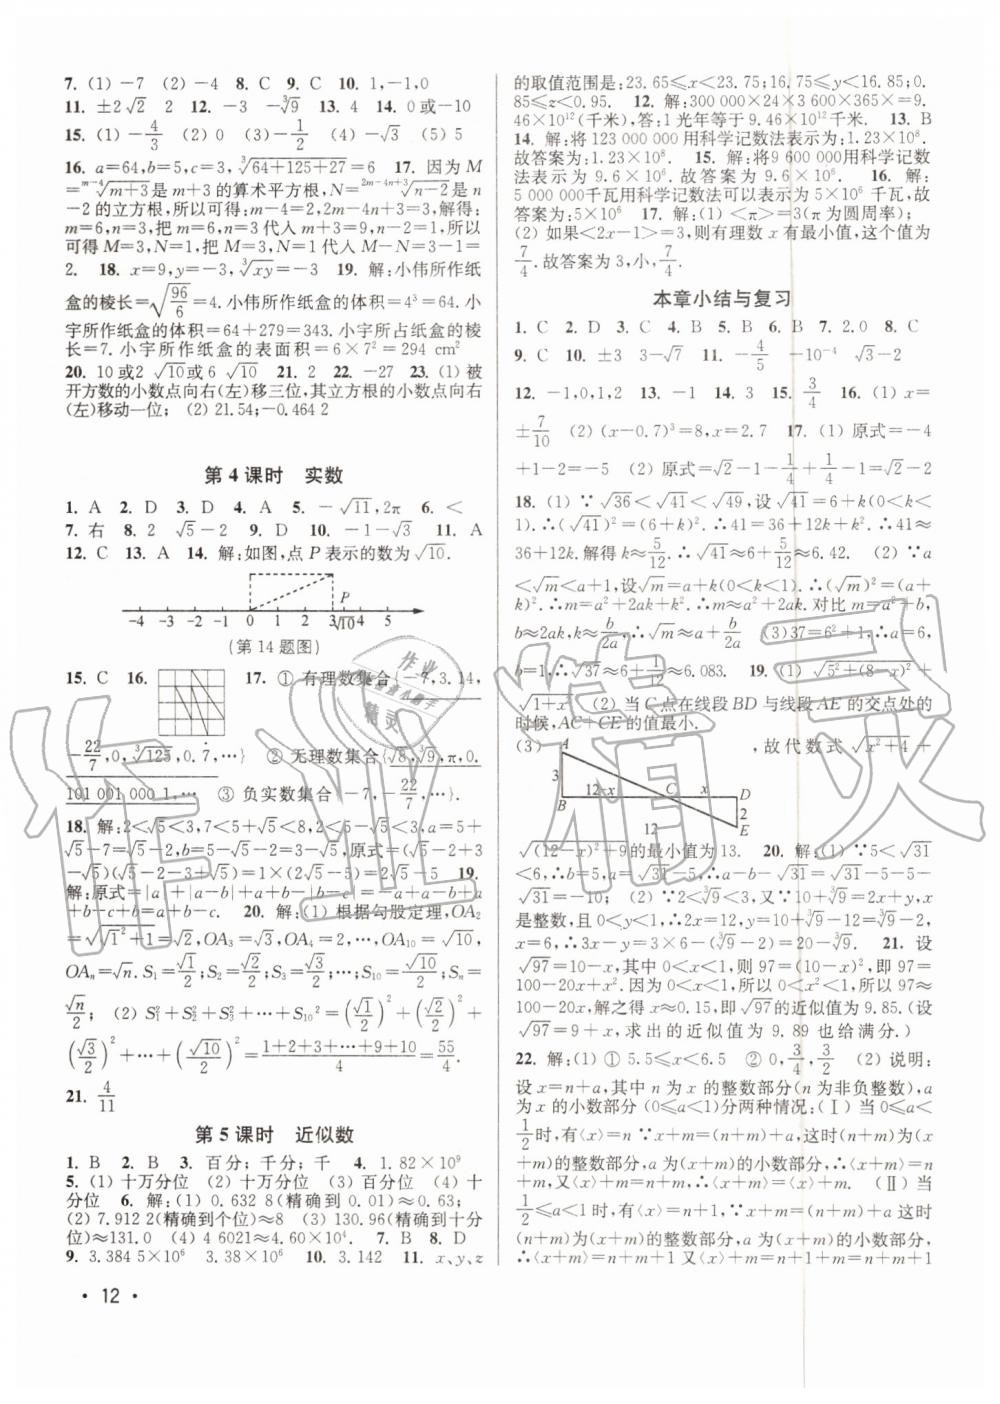 7. (1)－7　(2)－4　8. C　9. C　10. 1,－1,0
11. ±2√2　2　12. －3　－∛9　13. 4　14. 0或－10
15. (1)－4/3　(2)0　(3)－1/2　(4)－6　(5)5
16. a=64,b=5,c=3,∛(64+125+27)=6　17. 因为M
=ᵐ⁻⁴√(m+3)是m+3的算术平方根,N=²ᵐ⁻⁴ⁿ⁺³√(n－2)是n
－2的立方根,所以可得:m－4=2,2m－4n+3=3,解得:
m=6,n=3,把m=6,n=3代入m+3=9,n－2=1,所以
可得M=3,N=1,把M=3,N=1代入M－N=3－1=
2.　18. x=9,y=－3,∛(xy)=－3　19. 解:小伟所作纸
盒的棱长=√(96/6)=4.小伟所作纸盒的体积=4³=64.小
宇所作纸盒的体积=64+279=343.小宇所占纸盒的棱
长=7.小宇所作纸盒的表面积=6×7²=294 cm²
20. 10或2　√10或6　√10　21. 2　22. －27　23. (1)被
开方数的小数点向右(左)移三位,其立方根的小数点向右
(左)移动一位;　(2)21.54;－0.464 2
第4课时　实数
1. A　2. D　3. D　4. A　5. －√11,2π　6. <
7. 右　8. 2　√5－2　9. D　10. －1－√3　11. A
12. C　13. A　14. 解:如图,点P表示的数为√10.
P
－4 －3 －2 －1 0 1 2 3 √10 4 5
(第14题图)
15. C　16.　17. ①有理数集合{－7,3.14,
－22/7,0,∛125,0.7̇,…}　②无理数集合{√8,∛9,π,0.
101 001 000 1,…　③负实数集合{－7,－22/7,…}.
18. 解:2<√5<3,7<5+√5<8,2<5－√5<3,a=5+
√5－7=√5－2,b=5－√5－2=3－√5,原式=(√5－2+3
－√5)(√5－2－3+√5)=1×(2√5－5)=2√5－5　19.
解:原式=|a|+|a－b|+a+b－|b－c|=－a+a－b+a
+b－c+b=a+b－c.　20. 解:(1)根据勾股定理,OA₂
=√(1²+1)=√2,OA₃=√3,OA₄=2,…,OA₁₀=√10,
OAₙ=√n.S₁=√1/2;S₂=√2/2;S₃=√3/2;…;S₁₀=√10/2;Sₙ=
√n/2;　(2)S₁²+S₂²+S₃²+…+S₁₀²=(√1/2)²+(√2/2)²+
(√3/2)²+…+(√10/2)²=(1+2+3+…+9+10)/4=55/4.
21. 4/11
第5课时　近似数
1. B　2. B　3. 百分;千分;千　4. 1.82×10⁹
5. (1)十万分位　(2)十万分位　(3)百分位　(4)十
分位　6. 解:(1)0.632 8(精确到0.01)≈0.63;
(2)7.912 2(精确到个位)≈8　(3)130.96(精确到十分
位)≈131.0　(4)4 6021≈4.60×10⁴.　7. B　8. D
9. 3.384 5×10⁶　3.38×10⁶　10. 3.142　11. x、y、z
· 12 ·
的取值范围是:23.65≤x<23.75;16.75≤y<16.85;0.
85≤z<0.95.　12. 解:300 000×24×3 600×365×=9.
46×10¹²(千米),答:1光年等于9.46×10¹²千米.　13. B
14. 解:将123 000 000用科学记数法表示为:1.23×10⁸.
故答案为:1.23×10⁸.　15. 解:将9 600 000用科学记数
法表示为9.6×10⁶.故答案为9.6×10⁶.　16. 解:
5 000 000千瓦用科学记数法可以表示为5×10⁶千瓦,故
答案为:5×10⁶　17. 解:(1)<π>=3(π为圆周率);
(2)如果<2x－1>=3,则有理数x有最小值,这个值为
7/4.故答案为3,小,7/4.
本章小结与复习
1. C　2. D　3. C　4. B　5. B　6. B　7. 2.0　8. C
9. C　10. ±3　3－√7　11. －4/5　－10⁻⁴　√3－2
12. －1,0,1,2　13. －1　14. 3　15. 3/4　16. (1)x=
±7/10　(2)(x－0.7)³=8,x=2.7　17. (1)原式=－4
+1－2=－5　(2)原式=√2－1－1/4+1/4－1=√2－2
18. (1)∵√36<√41<√49,设√41=6+k(0<k<
1).∴(√41)²=(6+k)².∴41=36+12k+k².∴41≈
36+12k.解得k≈5/12.∴√41≈6+5/12≈6.42.　(2)∵a
<√m<a+1,设√m=a+k(0<k<1).∴(√m)²=(a+
k)².∴m=a²+2ak+k².∴m≈a²+2ak.对比m=a²+b,
b≈2ak,k≈b/2a,∴√m≈a+b/2a　(3)37=6²+1,a=6,
b=1,∴√37≈6+1/12≈6.083.　19. (1)√(5²+(8－x)²)+
√(1+x²)　(2)当C点在线段BD与线段AE的交点处的
时候,AC+CE的值最小.
(3)　,故代数式√(x²+4)+
A 3 B 12－x C x D 2 E 12
√((12－x)²+9)的最小值为13.　20. 解:(1)∵5<√31
<6,∴b=5,a=√31－5,∴a－b－√31=√31－5－5－
√31=－10;　(2)∵2<∛9<3,又∵10+∛9=2x+y,x
是整数,且0<y<1,∴2x=12,y=10+∛9－12=∛9－2,
x=6,∴3x－y=3×6－(∛9－2)=20－∛9.　21. 设
√97=10－x,其中0<x<1,则97=(10－x)²,即97=
100－20x+x².因为0<x<1,所以0<x²<1,所以97≈
100－20x,解之得x≈0.15,即√97的近似值为9.85.(设
√97=9+x,求出的近似值为9.89也给满分.)
22. 解:(1)①5.5≤x<6.5　②0,3/4,3/2　(2)说明:
设x=n+a,其中n为x的整数部分(n为非负整数),a
为x的小数部分(0≤a<1)分两种情况:(Ⅰ)当0≤a<
1/2时,有⟨x⟩=n∵x+m=(n+m)+a,这时(n+m)为(x
+m)的整数部分,a为(x+m)的小数部分,∴⟨x+m⟩=n+
m,又⟨x⟩+m=n+m,∴⟨x+m⟩=⟨x⟩+m.　(Ⅱ)当
1/2≤a<1时,有⟨x⟩=n+1,∵x+m=(n+m)+a这时
(n+m)为(x+m)的整数部分,a为(x+m)的小数部分,
∴⟨x+m⟩=n+m+1又⟨x⟩+m=n+1+m=n+m+1
作业精灵